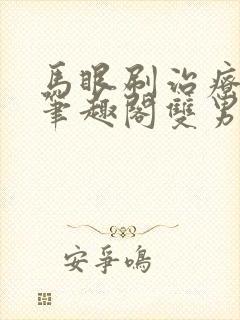 馬眼刷治療
筆趣閣雙男
安爭鳴